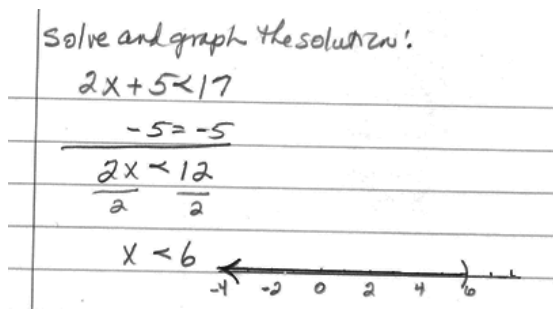 Solve and graph the solution:
2x + 5 < 17
-5 = -5
2x < 12
2 2
x < 6
-4 -2 0 2 4 6